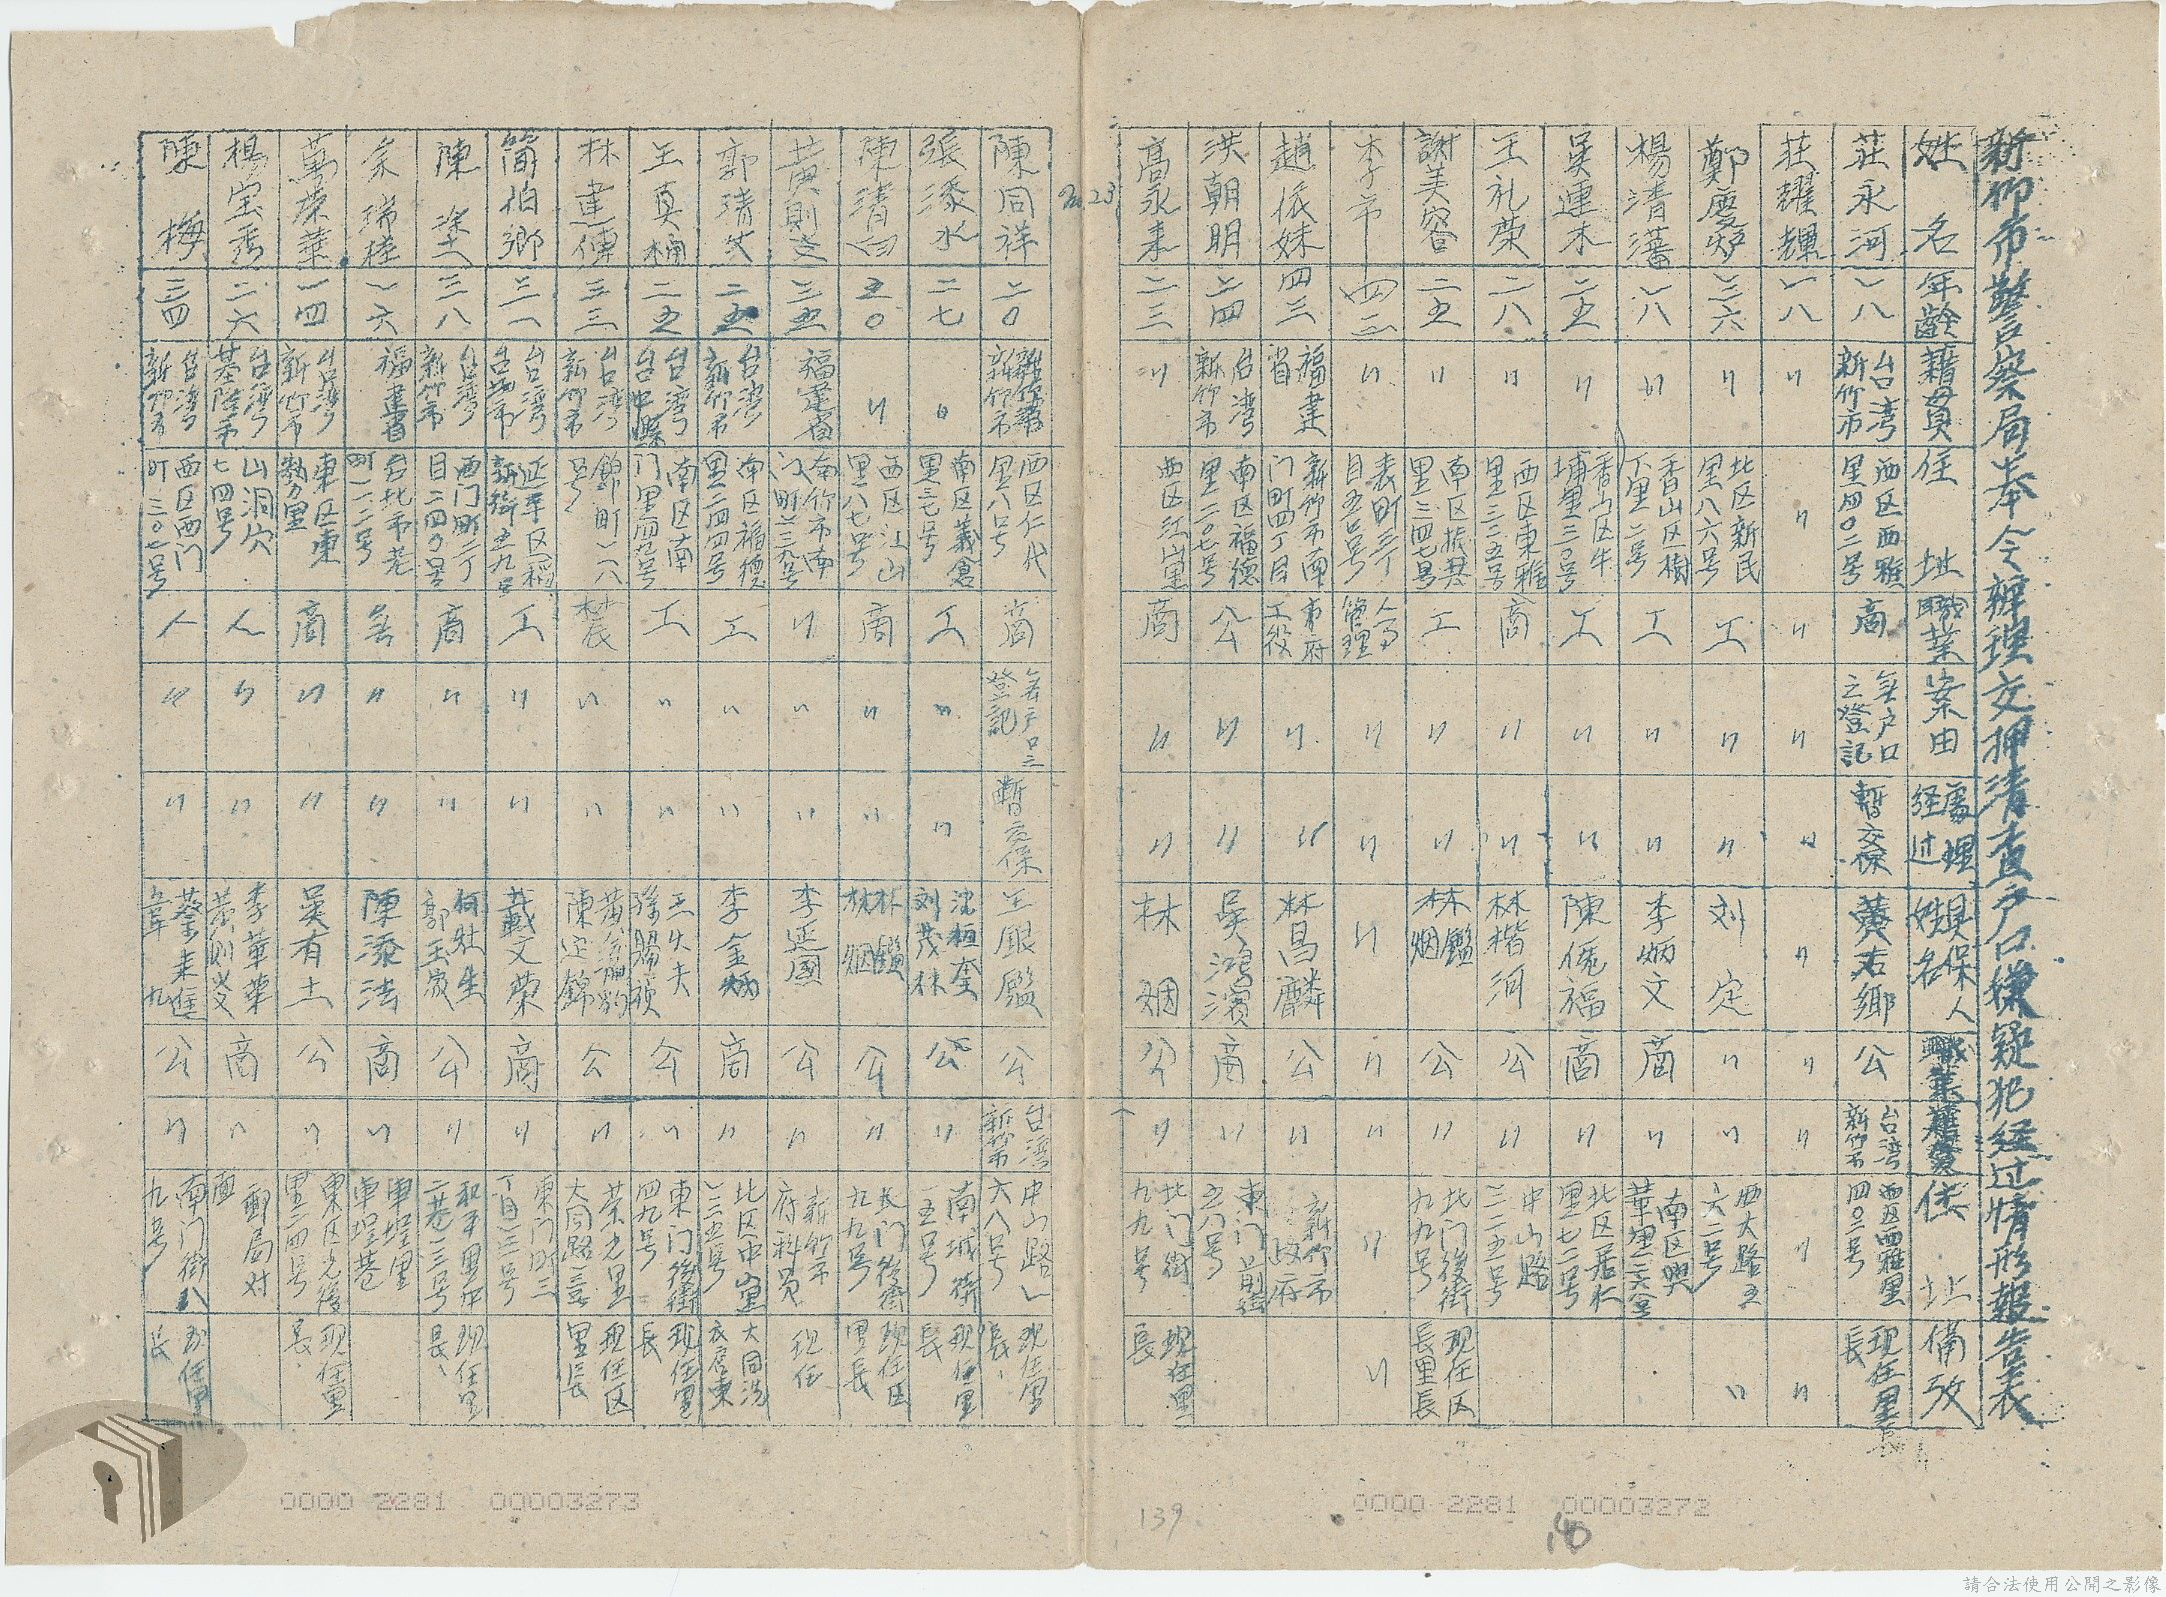 新竹市警察局奉令辦理交押清查戶口嫌疑犯経过情形報告表
姓名 年齡 籍貫 住址 職業 案由 處理経过 具保人姓名 職業 籍貫 住址 備攷
莊永河 一八 台湾新竹市 西区西雅里四〇二号 商 無户口之登記 暫交保 黄右鄉 公 台湾新竹市 西区西雅里四〇二号 現任里長
莊耀輝 一八 〃 〃 〃 〃 〃 〃 〃 〃 〃 〃
鄭慶炉 三六 〃 北区新民里八六号 工 〃 〃 刘定 〃 〃 西大路五六二号 〃
楊清藩 一八 〃 香山区樹下里二号 工 〃 〃 李炳文 商 〃
吴連木 二五 〃 香山区牛埔里三〇号 工 〃 〃 陳俿福 商 〃 北区居仁里七二号
王礼荣 二八 〃 西区東雅里三二五号 商 〃 〃 林楷河 公 〃 中山路三二五号
謝美容 二五 〃 南区振基里三四七号 工 〃 〃 林烟鑑 公 〃 北门後街九九号 現任区長里長
李市 四二 〃 表町三丁目五号 管理 〃 〃 〃 〃 〃 〃 〃
趙依妹 四三 福建省 新竹市南门町四丁目 市府工役 〃 〃 林昌麟 公 〃 新竹市政府
洪朝明 二四 台湾新竹市 南区福德里二〇七号 公 〃 〃 吴鴻濱 商 〃 東门前街五八号
高永来 二三 〃 西区江山里 商 〃 〃 林烟 公 〃 北门街九九号 現任里長
陳同祥 二〇 新竹市 西区仁代里八号 商 無户口之登記 暫交保 王銀鑑 公 台湾新竹市 中山路一六八号 現任里長
張添水 二七 〃 南区義倉里三七号 工 〃 〃 沈桓奎 刘茂林 公 〃 南城街一五号 現任里長
陳清 五〇 〃 西区江山里八七号 商 〃 〃 林鑑烟 公 〃 北门後街九九号 現任区里長
黄則 三五 福建省 新竹市南门町 〃 〃 〃 李延國 公 〃 新竹市府科員 現任
郭清 二五 台湾新竹市 南区福德里二四四号 工 〃 〃 李金炳 商 〃 北区中山里三五号 大同洗衣店東
王真桷 二五 台湾台中縣 南区南门里 工 〃 〃 公 〃 東门後街四九号 現任里長
林建傳 三三 台湾新竹市 錦町一八号 農 〃 〃 陳定錦 公 〃 荣光里大同路 現任区里長
簡伯鄉 三一 台湾 延平区稻新街五九号 工 〃 〃 戴文荣 商 〃 東门町三丁目三号
陳塗 三八 台湾新竹市 西门町二丁目二四〇号 商 〃 〃 何壯生 郭玉 公 〃 和平里平二巷一三号 現任里長
余瑞桂 一六 福建省 台北市老町一二号 無 〃 〃 陳添法 商 〃 車埕里車埕巷
萬荣華 一四 台湾新竹市 東区東勢里 商 〃 〃 吴有土 公 〃 東区光復里二四号 現任里長
楊宝秀 二六 台湾基隆市 山洞穴七四号 人 〃 〃 李華 黄則 商 〃 郵局対面
陳梅 三四 台湾新竹 西区西门町三〇七号 人 〃 〃 蔡来 公 〃 南门街八九号 現任里長
2.23
139
140
0000 2281 00003273
0000 2281 00003272
請合法使用公開之影像